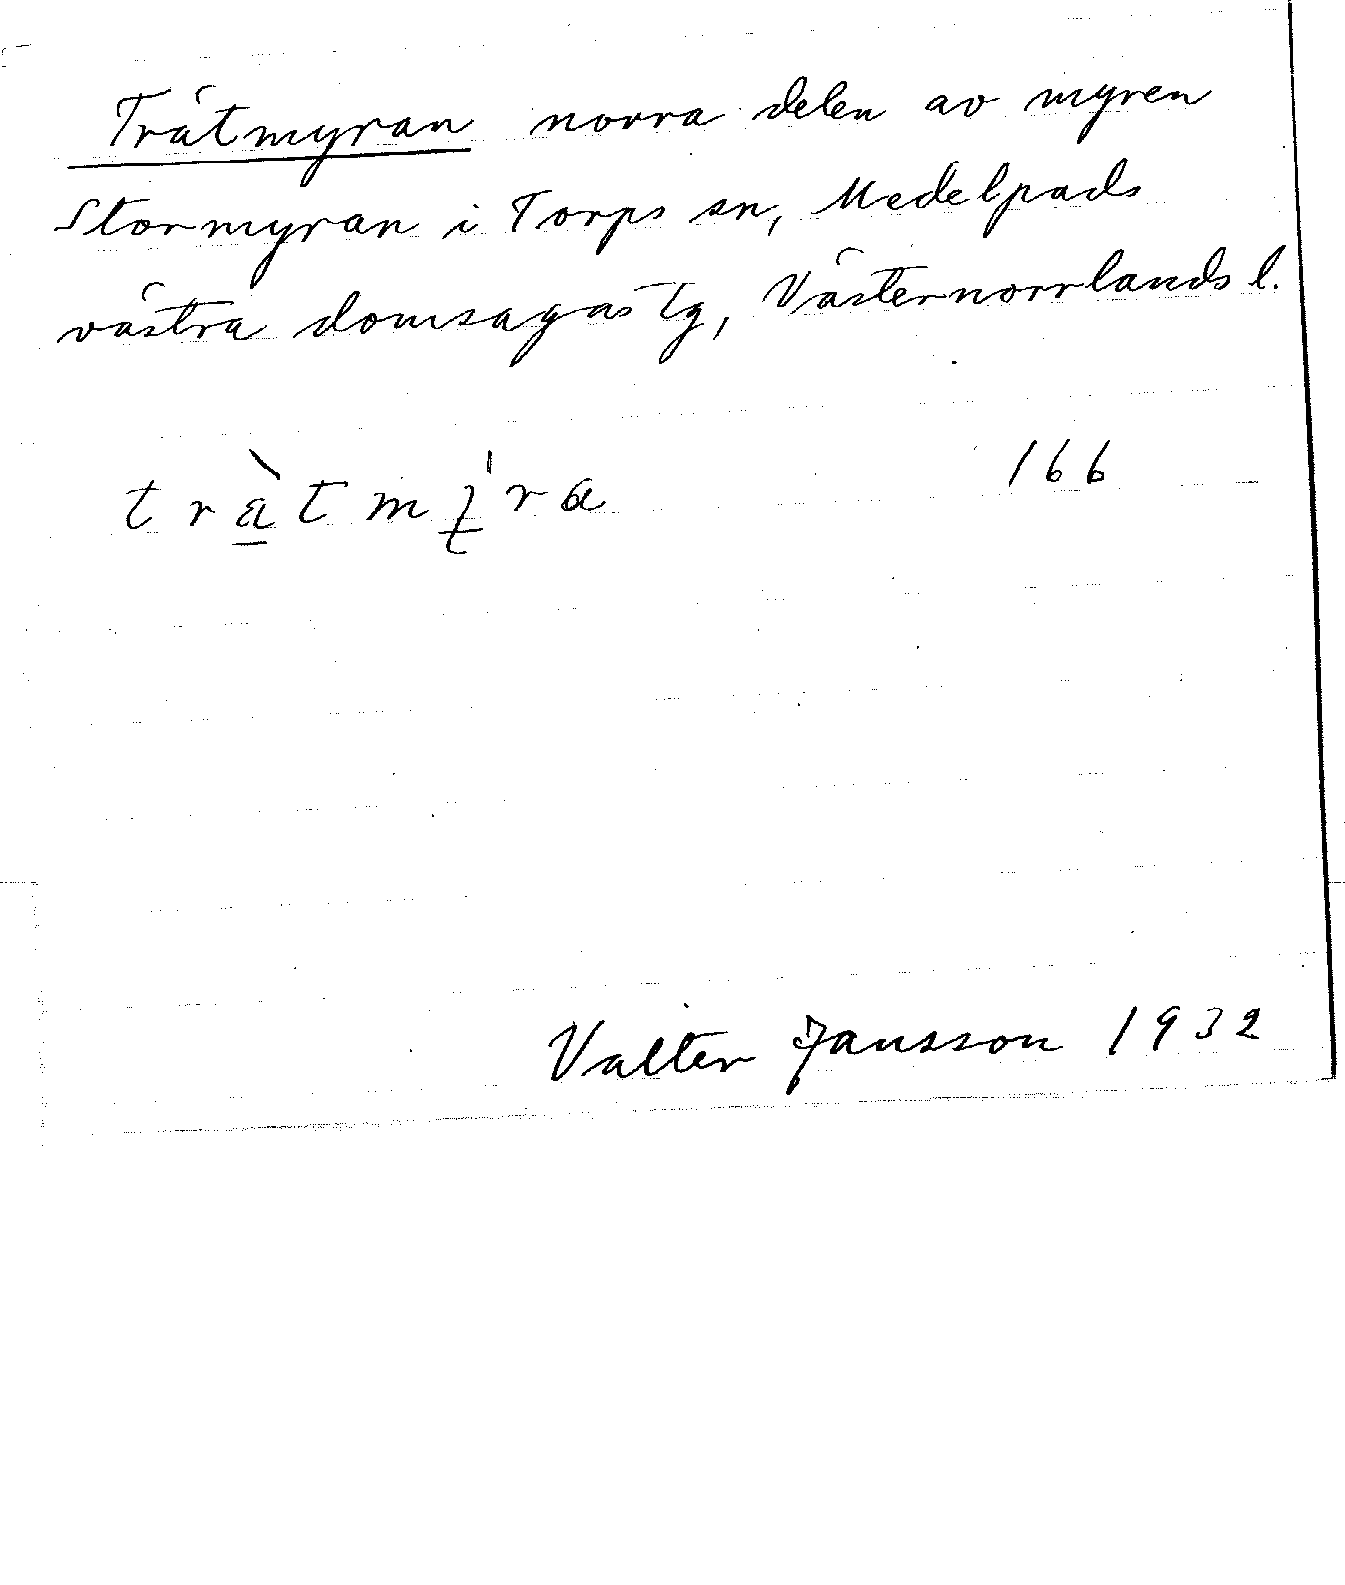 Trätmyran norra delen av myren
Stormyran i Torps sn, Medelpads
västra domsagas tg, Västernorrlands l.
trà̱tmy̱̍ra 166
Valter Jansson 1932